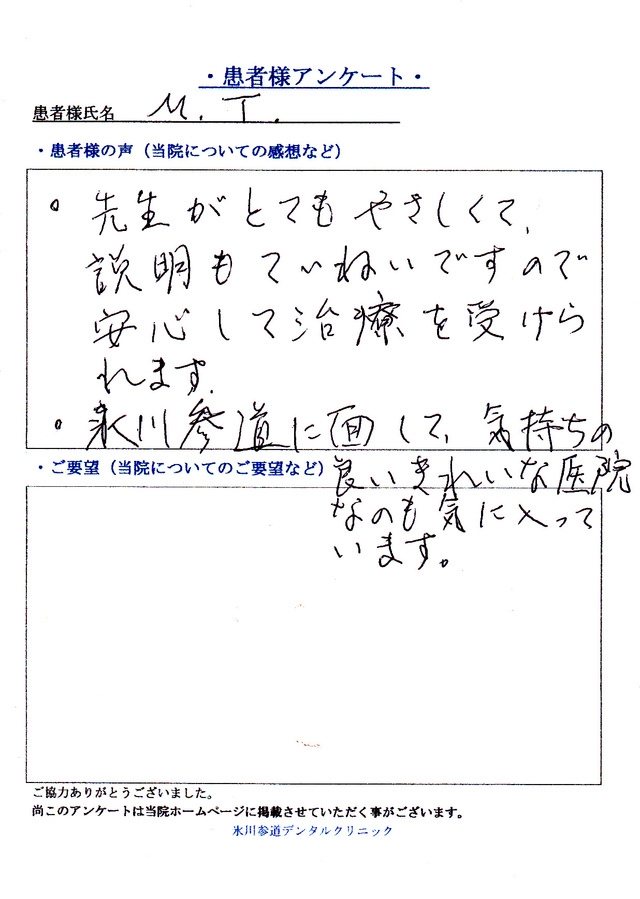 ・患者様アンケート・
患者様氏名 M.T.
・患者様の声（当院についての感想など）
。先生がとてもやさしくて、
説明もていねいですので
安心して治療を受けら
れます。
。氷川参道に面して、気持ちの
・ご要望（当院についてのご要望など）
良いきれいな医院
なのも気に入って
います。
ご協力ありがとうございました。
尚このアンケートは当院ホームページに掲載させていただく事がございます。
氷川参道デンタルクリニック